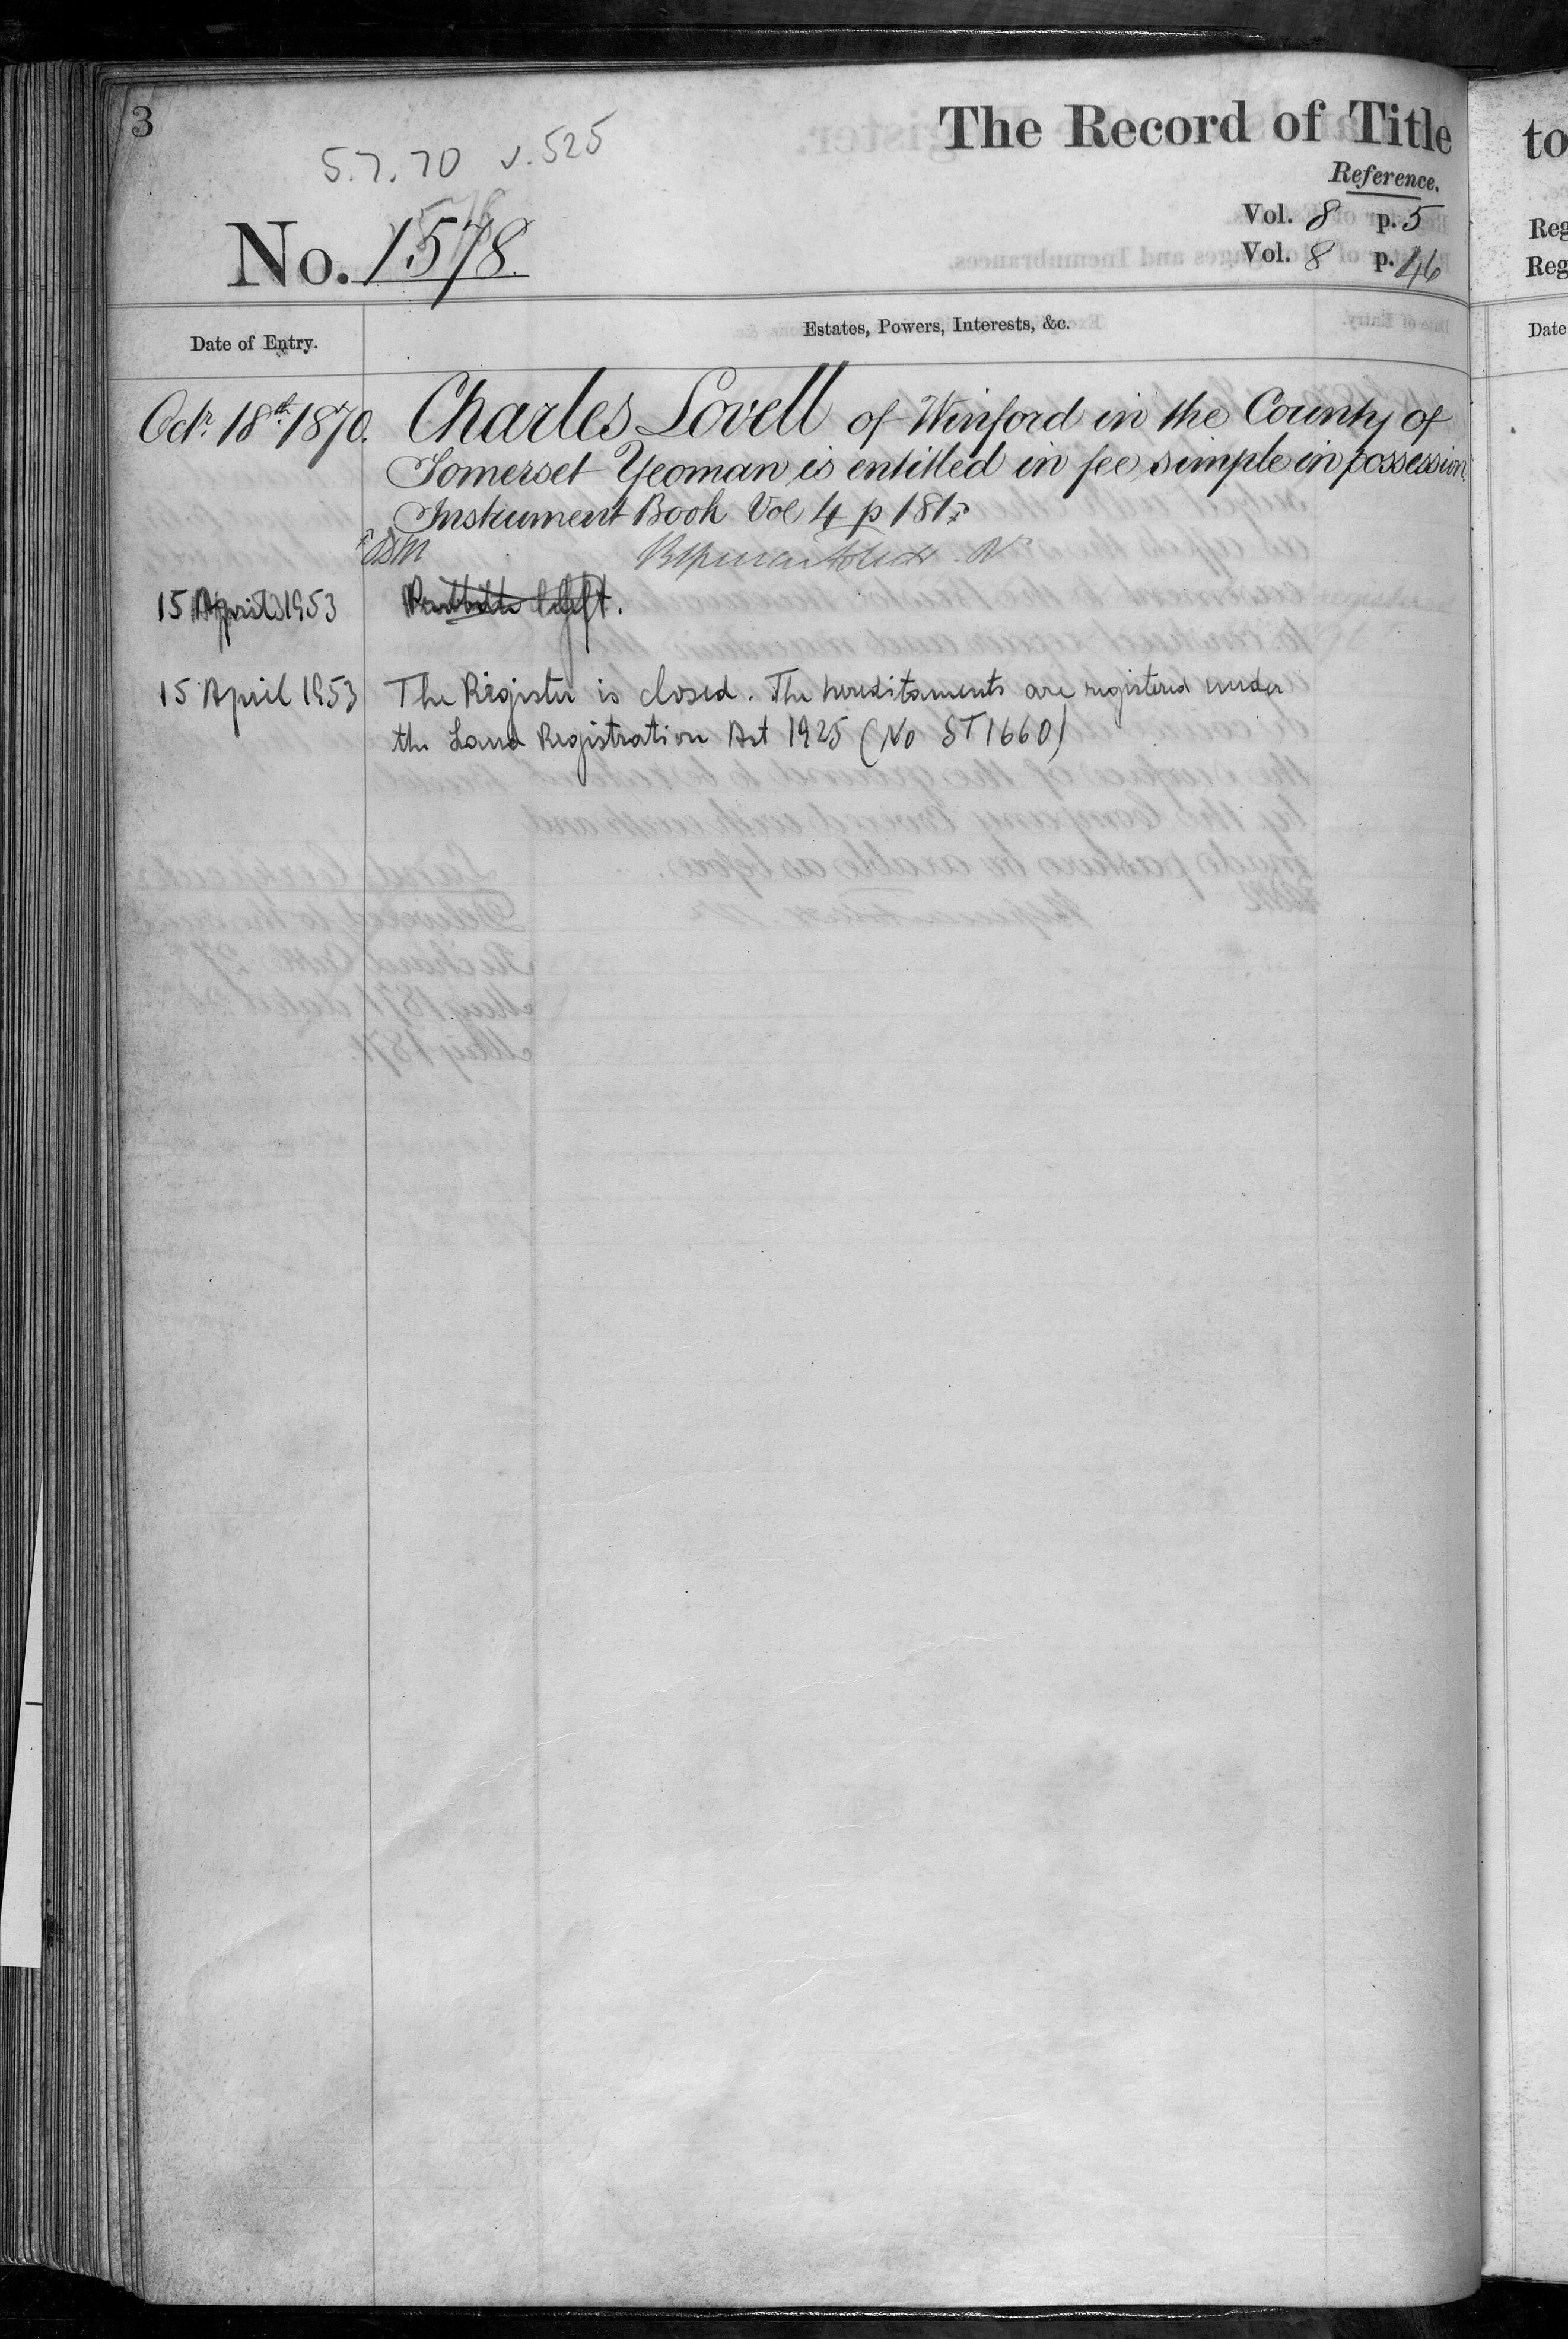 3
5.7.70 v. 525
The Record of Title
Reference.
Vol. 8 p. 5
Vol. 8 p. 46
No. 1578.
Date of Entry.
Estates, Powers, Interests, &c.
Octr. 18th. 1870. Charles Lovell of Winford in the County of
Somerset Yeoman is entitled in fee simple in possession
Instrument Book Vol 4 p 181
15 April 1953
15 April 1953 The Register is closed. The hereditaments are registered under
the Land Registration Act 1925 (No ST1660)
to
Reg
Reg
Date